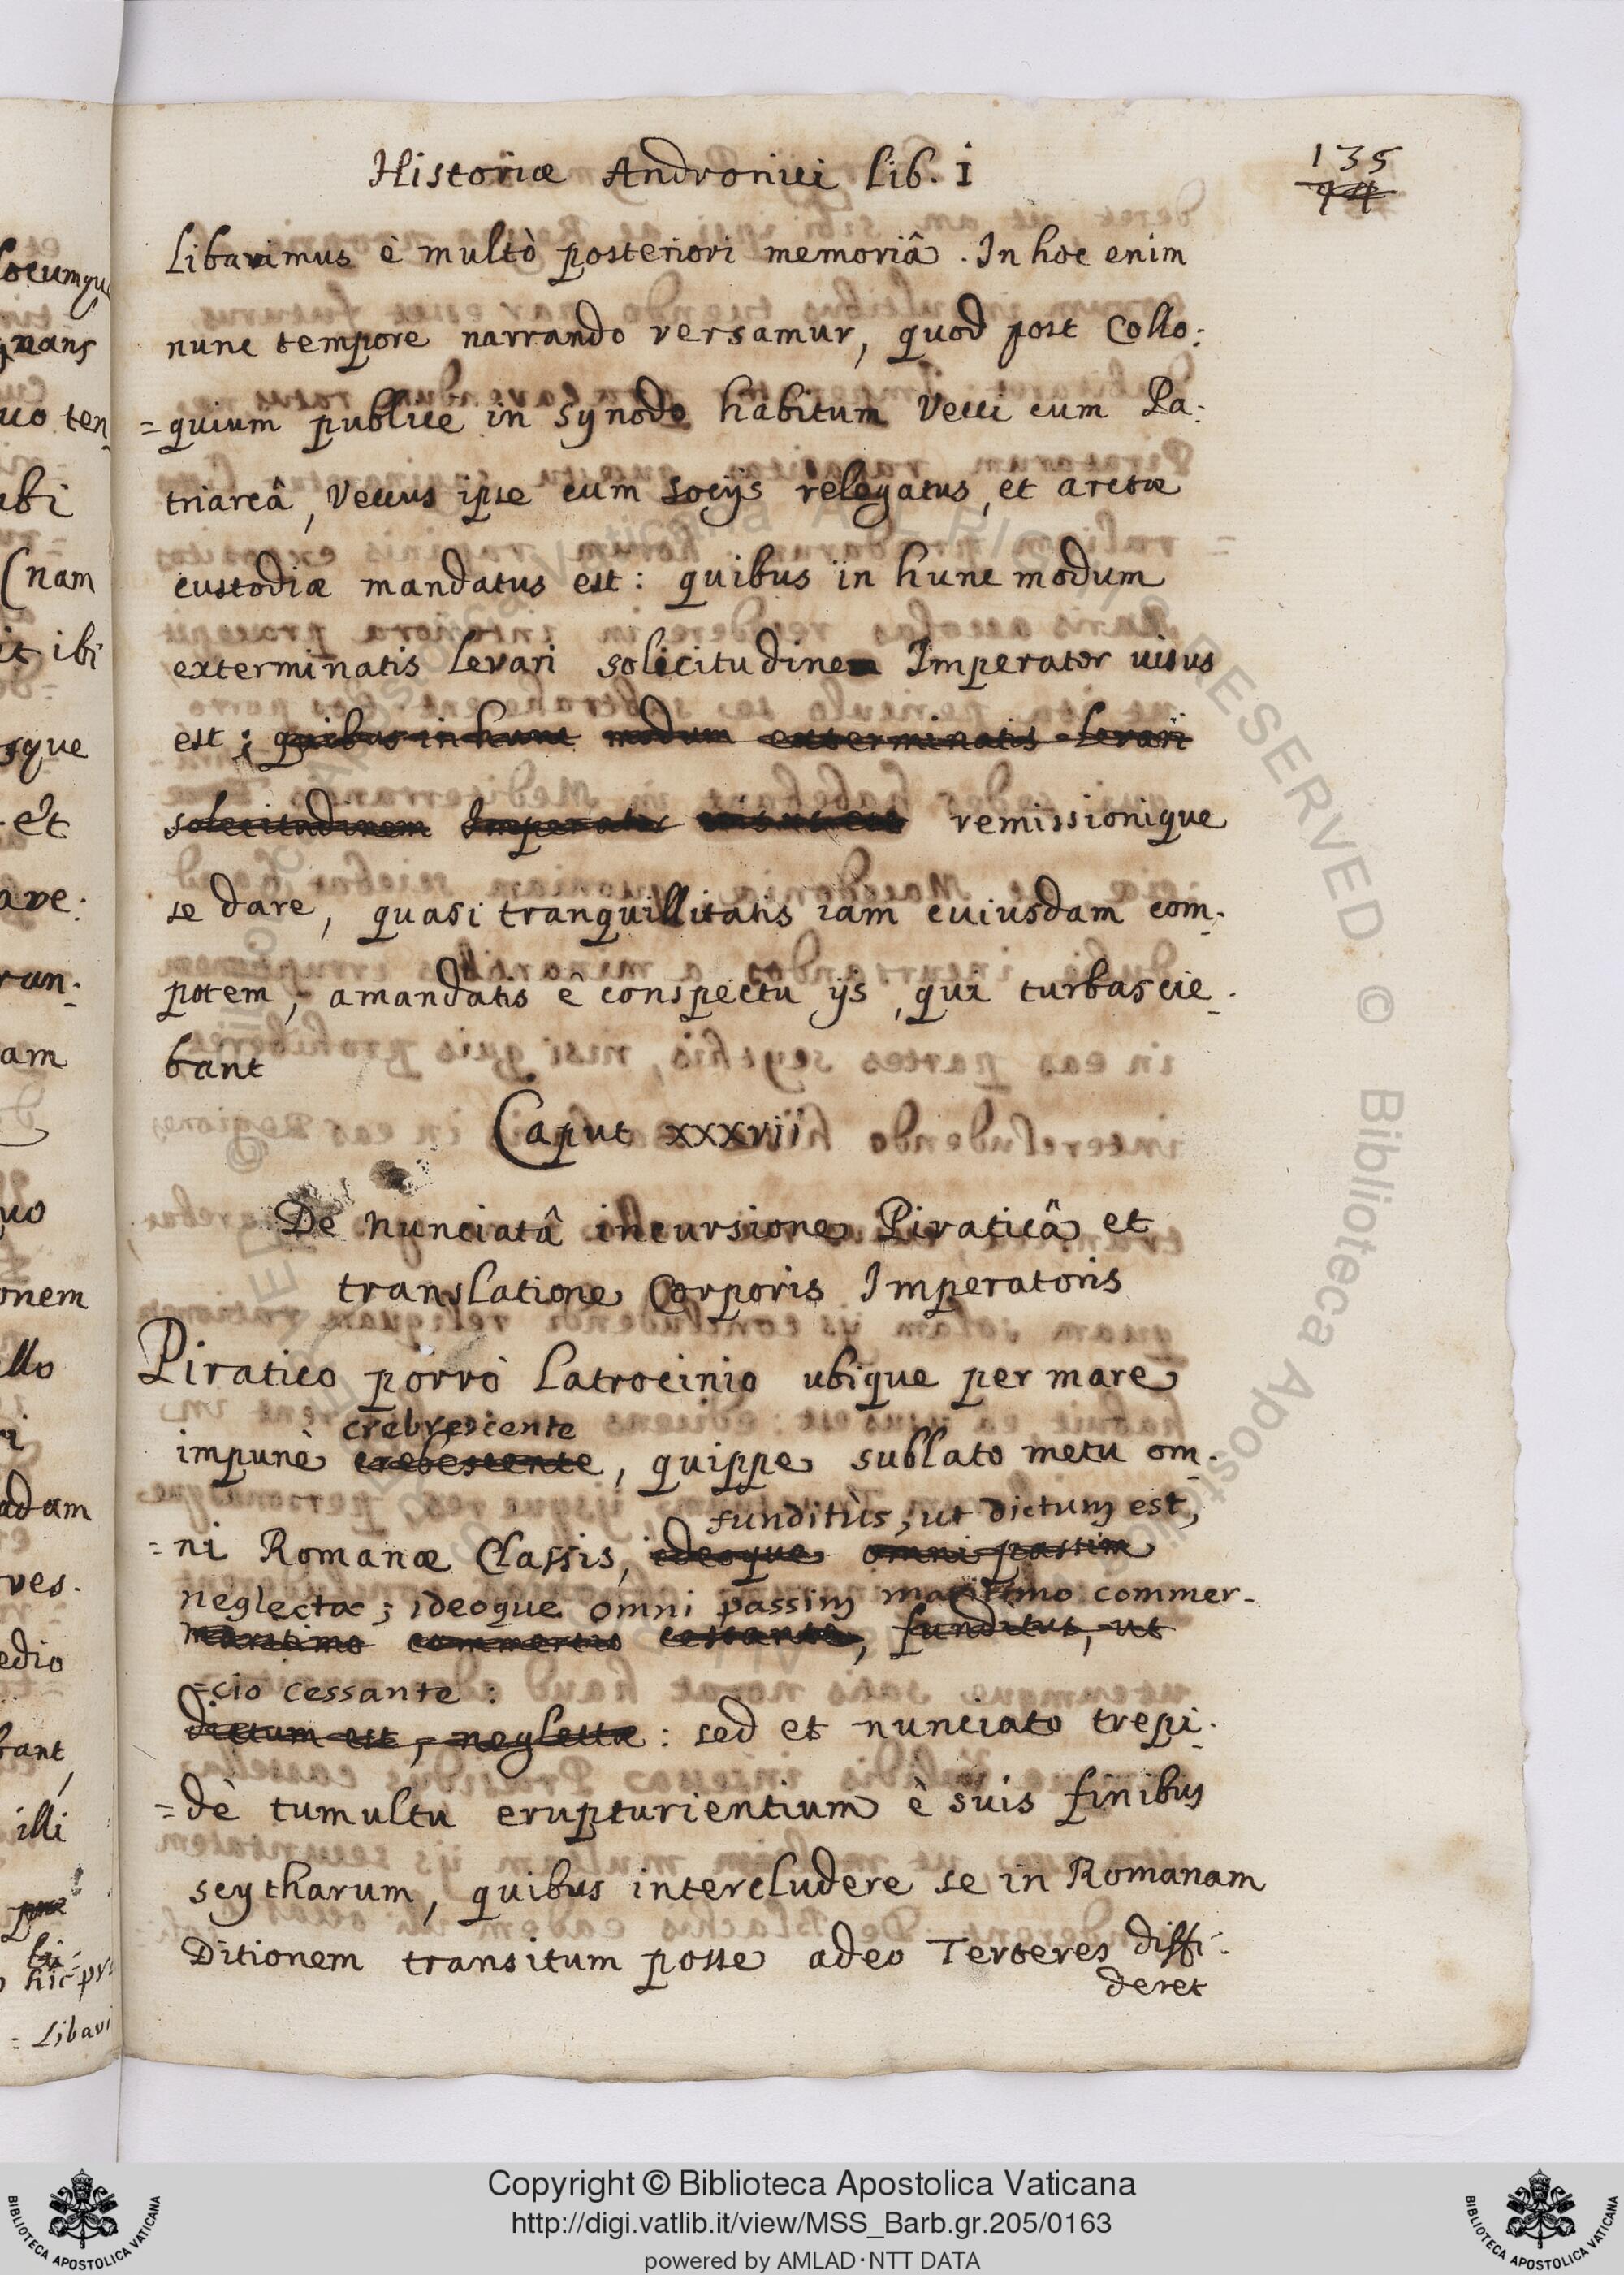 Historiæ Andronici Lib. I
135
94
Libavimus è multò posteriori memoriâ. In hoc enim
nunc tempore narrando versamur, quod post Collo:
=quium publice in synodo habitum Vecci cum Pa:
triarcâ, Veccus ipse cum socijs relegatus, et arctæ
custodiæ mandatus est: quibus in hunc modum
exterminatis levari solicitudine Imperator visus
est; quibus in hunc modum exterminatis levari
solecitudinem Imperator visus est remissionique
se dare, quasi tranquillitatis iam cuiusdam com-
potem, amandatis è conspectu ijs, qui turbas cie-
bant
Caput xxxvii
De nunciatâ incursione Piraticâ et
translatione Corporis Imperatoris
Piratico porrò Latrocinio ubique per mare
crebrescente
impunè crebescente, quippe sublato metu om-
funditùs, ut dictum est,
=ni Romanæ Classis, ideoque omni passim
neglectæ; ideoque omni passim maritimo commer-
maritimo commertio cessante, funditus, ut
=cio cessante:
dictum est, neglectæ: sed et nunciato trepi-
=dè tumultu erupturientium è suis finibus
scytharum, quibus intercludere se in Romanam
Ditionem transitum posse adeo Terteres diffi-
deret
locumque
gnans
uo ten
ubi
(nam
it ibi
sque
et
are:
ran:
am
uo
onem
llo
ri
adam
ves.
edio
bant,
illi
hic
=Libavi
Copyright © Biblioteca Apostolica Vaticana
http://digi.vatlib.it/view/MSS_Barb.gr.205/0163
powered by AMLAD·NTT DATA
BIBLIOTECA APOSTOLICA VATICANA
BIBLIOTECA APOSTOLICA VATICANA